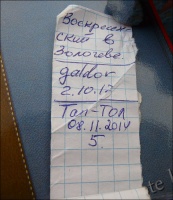 Воскресен-
ский в
Золочеве
galdor
2.10.12
Тол-ТОЛ
08.11.2014
5